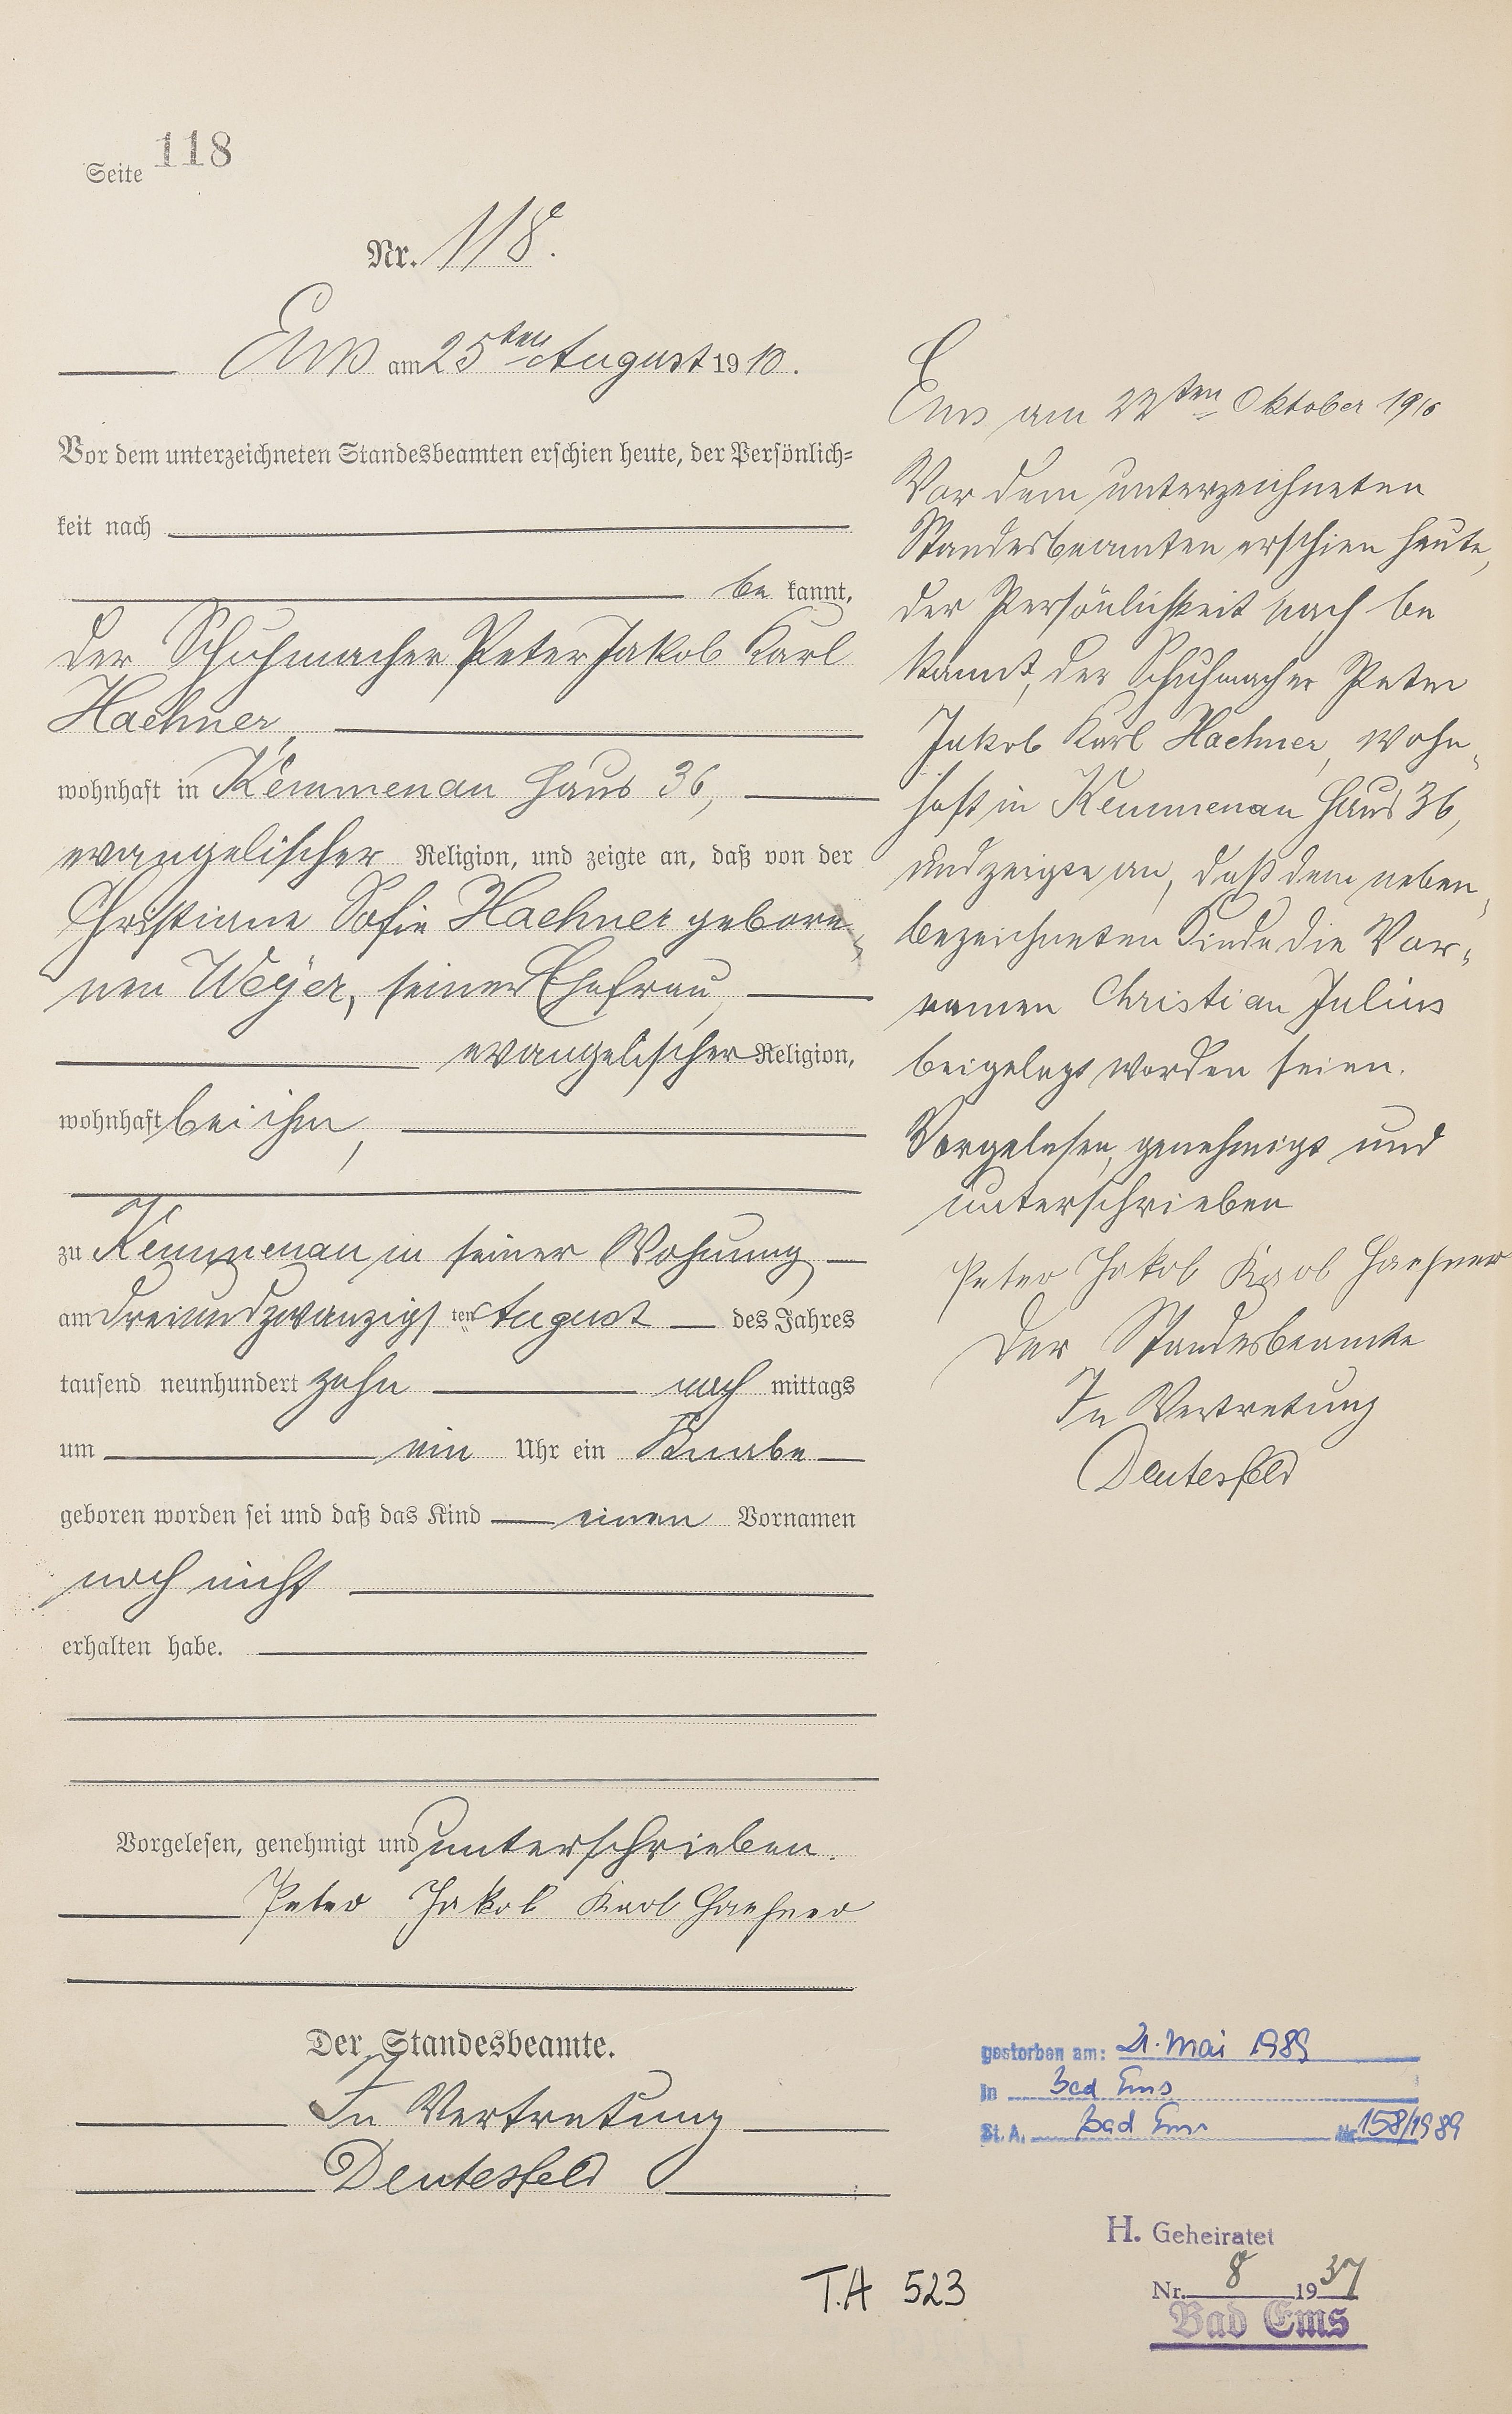 Seite 118
Nr. 118.
Ems am 25ten August 1910.
Vor dem unterzeichneten Standesbeamten erschien heute, der Persönlich=
keit nach
be kannt,
der Schuhmacher Peter Jakob Karl
Haehner,
wohnhaft in Kemmenau Haus 36,
evangelischer Religion, und zeigte an, daß von der
Christiane Sofie Haehner gebore„
nen Weyer, seiner Ehefrau,
evangelischer Religion,
wohnhaft bei ihm,
zu Kemmenau in seiner Wohnung
am dreiundzwanzigsten August des Jahres
tausend neunhundert zehn nach mittags
um ein Uhr ein Knabe
geboren worden sei und daß das Kind einen Vornamen
noch nicht
erhalten habe.
Vorgelesen, genehmigt und unterschrieben.
Peter Jakob Karl Haehner
Der Standesbeamte.
In Vertretung
Deutesfeld
Ems am 22ten Oktober 1910
Vor dem unterzeichneten
Standesbeamten erschien heute,
der Persönlichkeit nach be
kannt, der Schuhmacher Peter
Jakob Karl Haehner, wohn„
haft in Kemmenau Haus 36,
und zeigte an, daß dem neben„
bezeichneten Kinde die Vor„
namen Christian Julius
beigelegt worden seien.
Vorgelesen, genehmigt und
unterschrieben
Peter Jakob Karl Haehner
Der Standesbeamte
In Vertretung
Deutesfeld
gestorben am: 21. Mai 1989
in Bad Ems
St. A. Bad Ems Nr. 158/1989
H. Geheiratet
Nr. 8 1937
Bad Ems
T.A 523